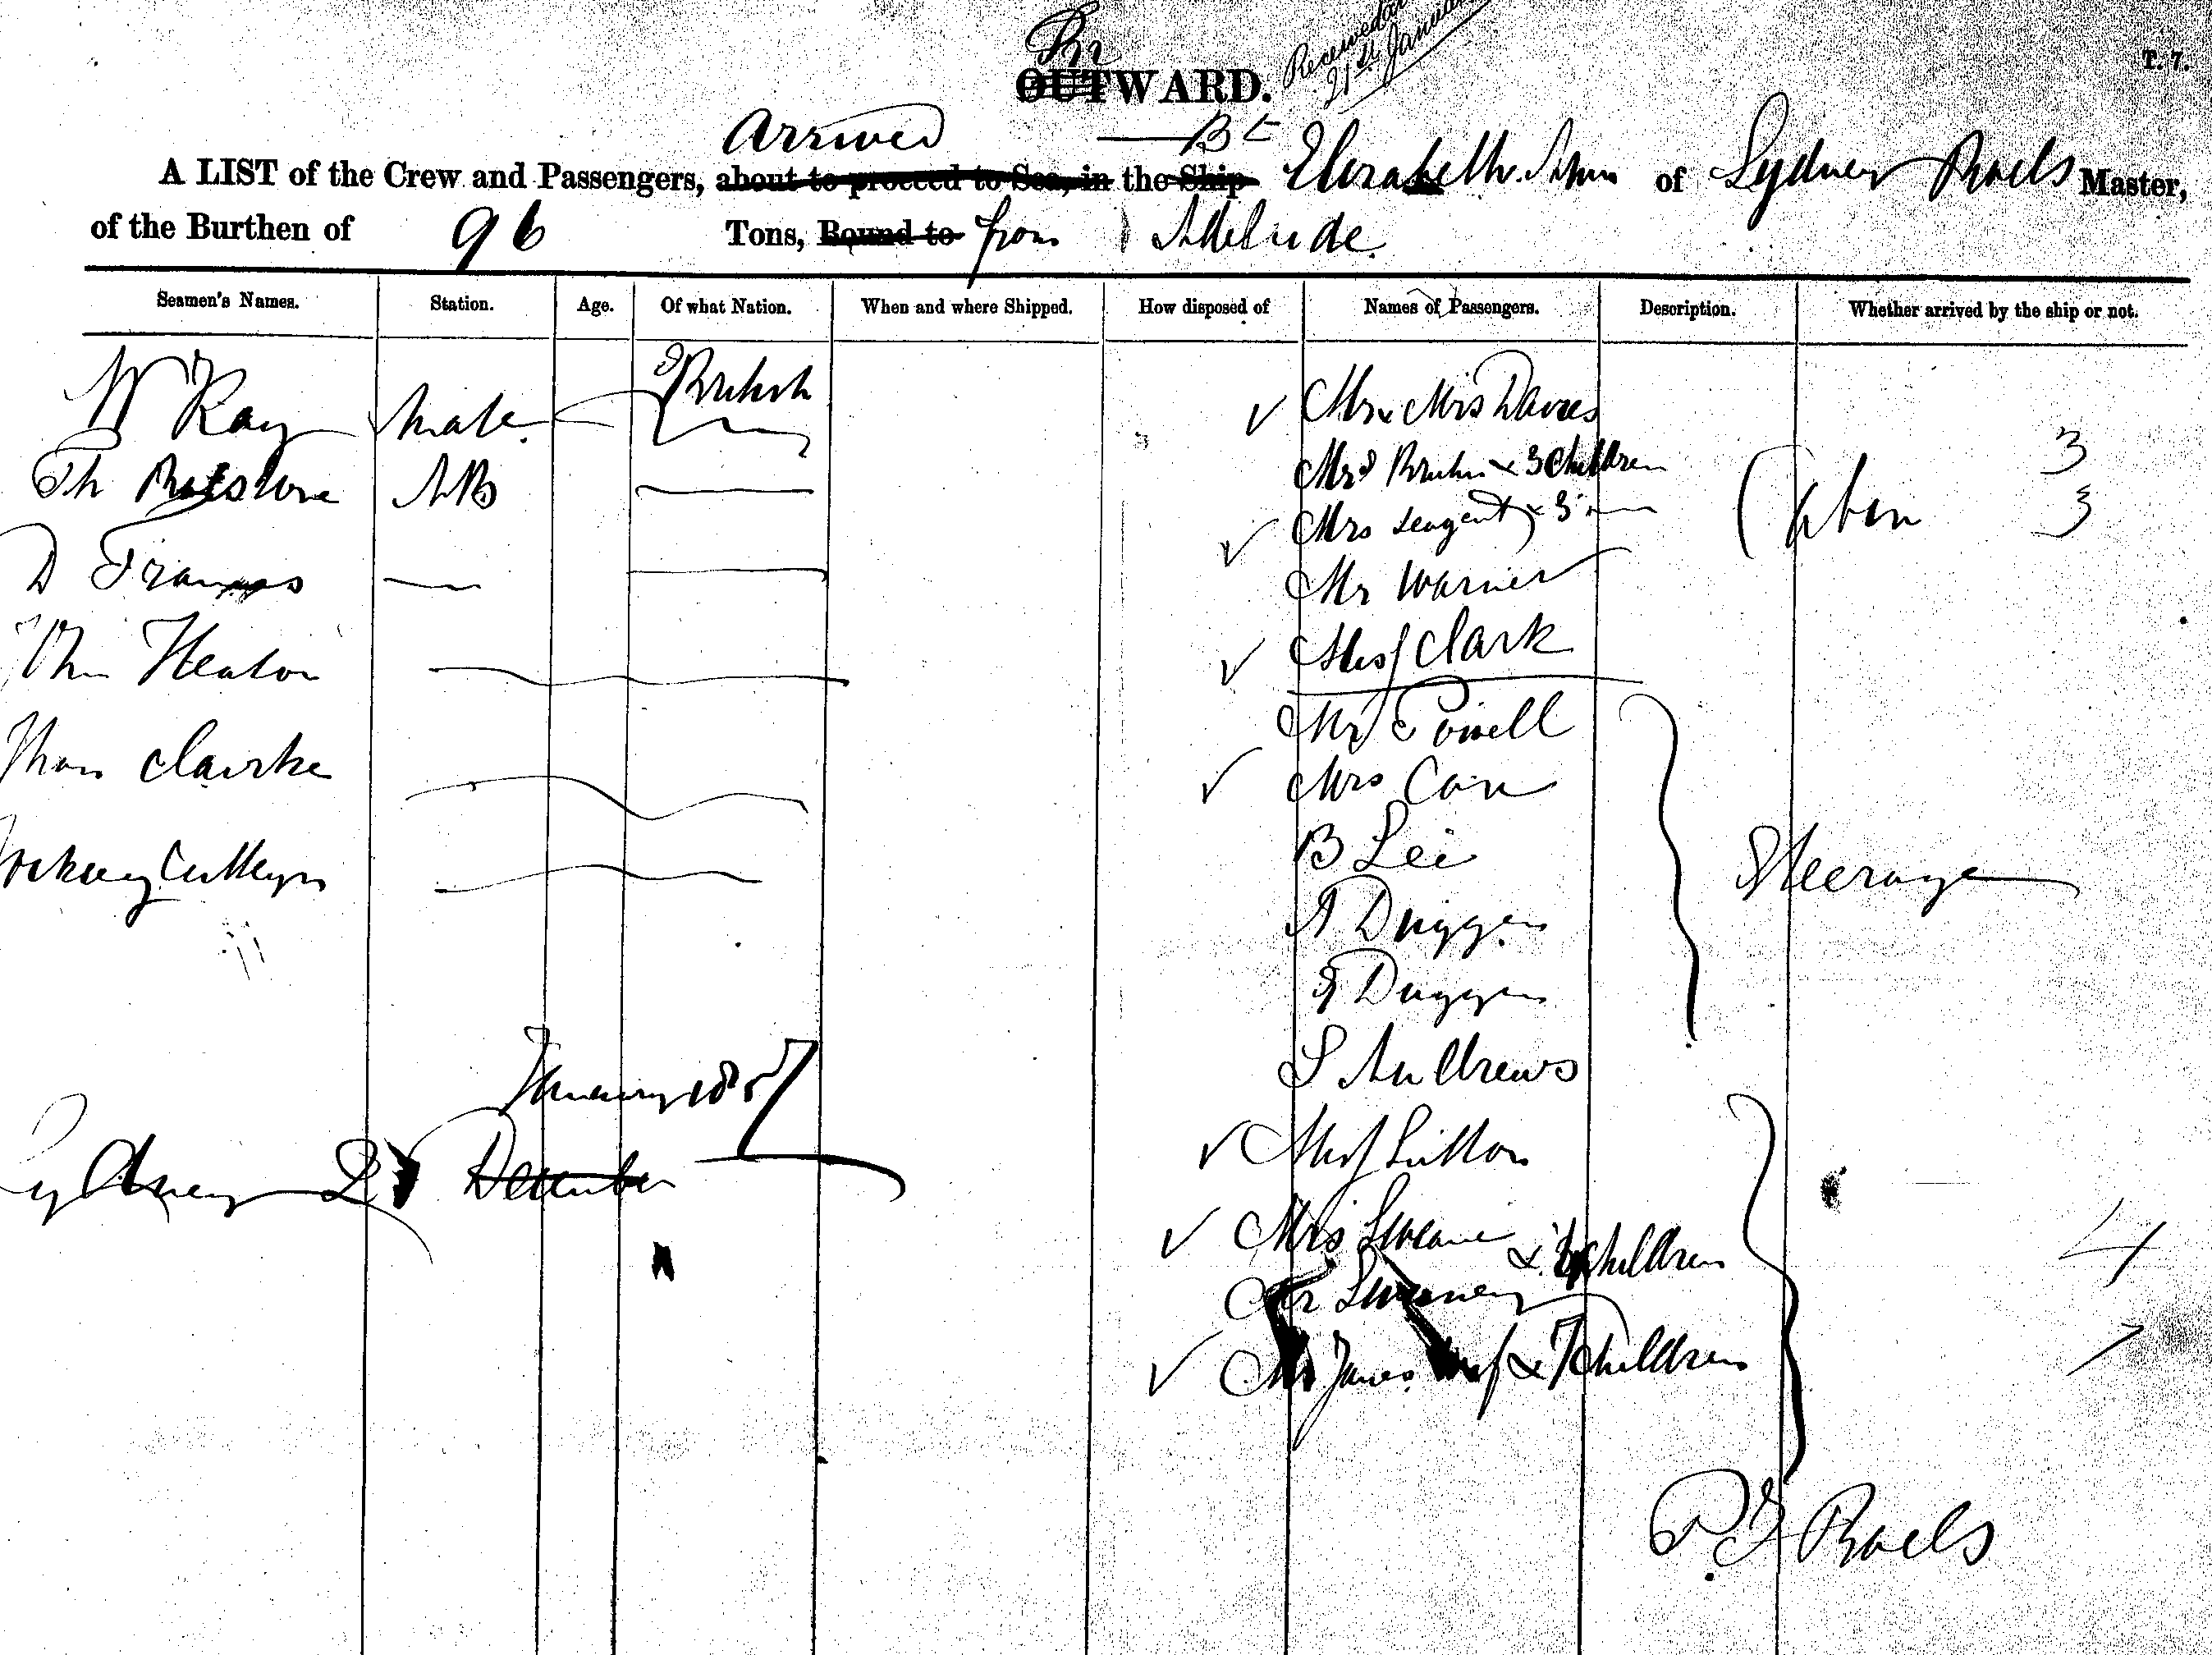 In
OUTWARD.
Received on
21st January
T. 7.
Arrived Bt
A LIST of the Crew and Passengers, about to proceed to Sea, in the Ship Elizabeth Ann of Sydney Roels Master,
of the Burthen of 96 Tons, Bound to from Adelaide
Seamen's Names. Station. Age. Of what Nation. When and where Shipped. How disposed of Names of Passengers. Description. Whether arrived by the ship or not.
W Kay Mate British Mr & Mrs Davies
Th AB Mrs Bruhn & 3 children 3
Mrs Seagent & 3 Cabin 3
D Frances Mr Warner
Heaton Miss Clark
Mr Powell
Thos Clarke Mrs Cain
B Lee
Steerage
A Duggan
Duggan
S Andrews
January 1857
Sydney 2 December Miss Sutton
Mrs & children 4
Mr Sweeney
James & 7 children 7
Roels